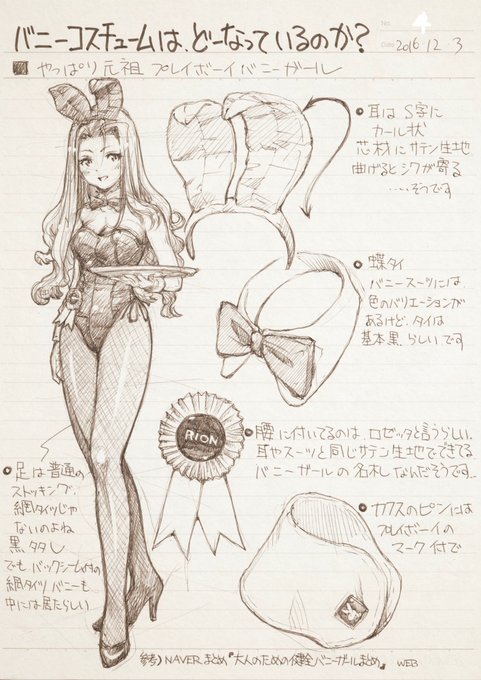 No. 4
Date 2016 12 3
バニーコスチュームは、どーなっているのか?
やっぱり元祖 プレイボーイバニーガール
耳は S字に
カール状
芯材にサテン生地
曲げるとシワが寄る
……そうです
蝶タイ
バニースーツには
色のバリエーションが
あるけど、タイは
基本黒、らしいです
RION
腰に付いてるのは、ロゼッタと言うらしい。
耳やスーツと同じサテン生地でできてる
バニーガールの名札なんだそうです…
足は普通の
ストッキング。
網タイツじゃ
ないのよね
黒タタし
でも バックシーム付の
網タイツ バニーも
中には居たらしい
カフスのピンには
プレイボーイの
マーク付で
参考) NAVERまとめ『大人のための健全バニーガールまとめ』 WEB